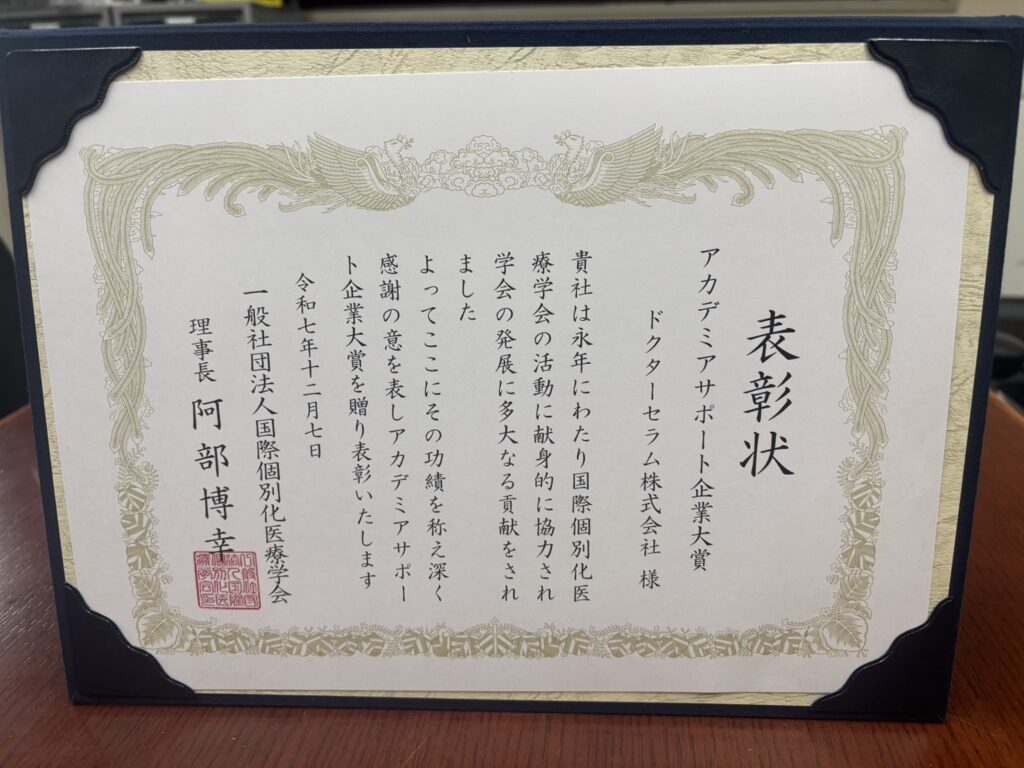 表彰状
アカデミアサポート企業大賞
ドクターセラム株式会社 様
貴社は永年にわたり国際個別化医
療学会の活動に献身的に協力され
学会の発展に多大なる貢献をされ
ました
よってここにその功績を称え深く
感謝の意を表しアカデミアサポー
ト企業大賞を贈り表彰いたします
令和七年十二月七日
一般社団法人国際個別化医療学会
理事長 阿部博幸